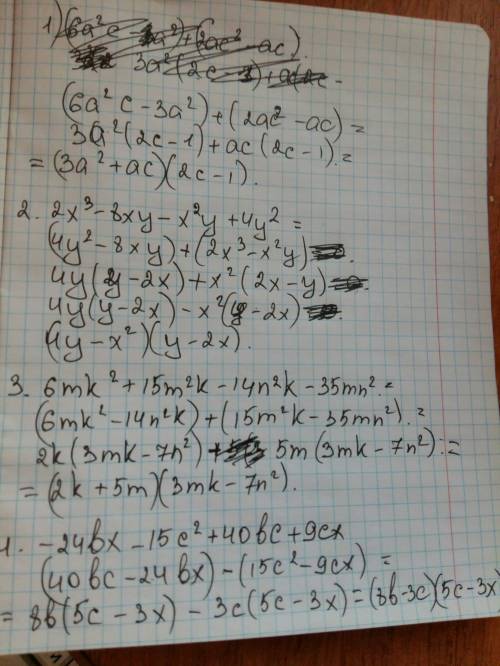 1) (6a²c - 3a²) + (2ac² - ac)
3a²(2c-1) + a(2c -
(6a²c - 3a²) + (2ac² - ac) =
3a²(2c-1) + ac(2c-1). =
= (3a² + ac)(2c-1).
2. 2x³ - 8xy - x²y + 4y² =
(4y² - 8xy) + (2x³ - x²y)
4y(y - 2x) + x²(2x - y)
4y(y - 2x) - x²(y - 2x)
(4y - x²)(y - 2x).
3. 6mk² + 15m²k - 14n²k - 35mn². =
(6mk² - 14n²k) + (15m²k - 35mn²). =
2k(3mk - 7n²) + 5m(3mk - 7n²). =
= (2k + 5m)(3mk - 7n²).
4. -24вx - 15c² + 40вc + 9cx
(40вc - 24вx) - (15c² - 9cx) =
= 8в(5c - 3x) - 3c(5c - 3x) = (8в-3c)(5c-3x)